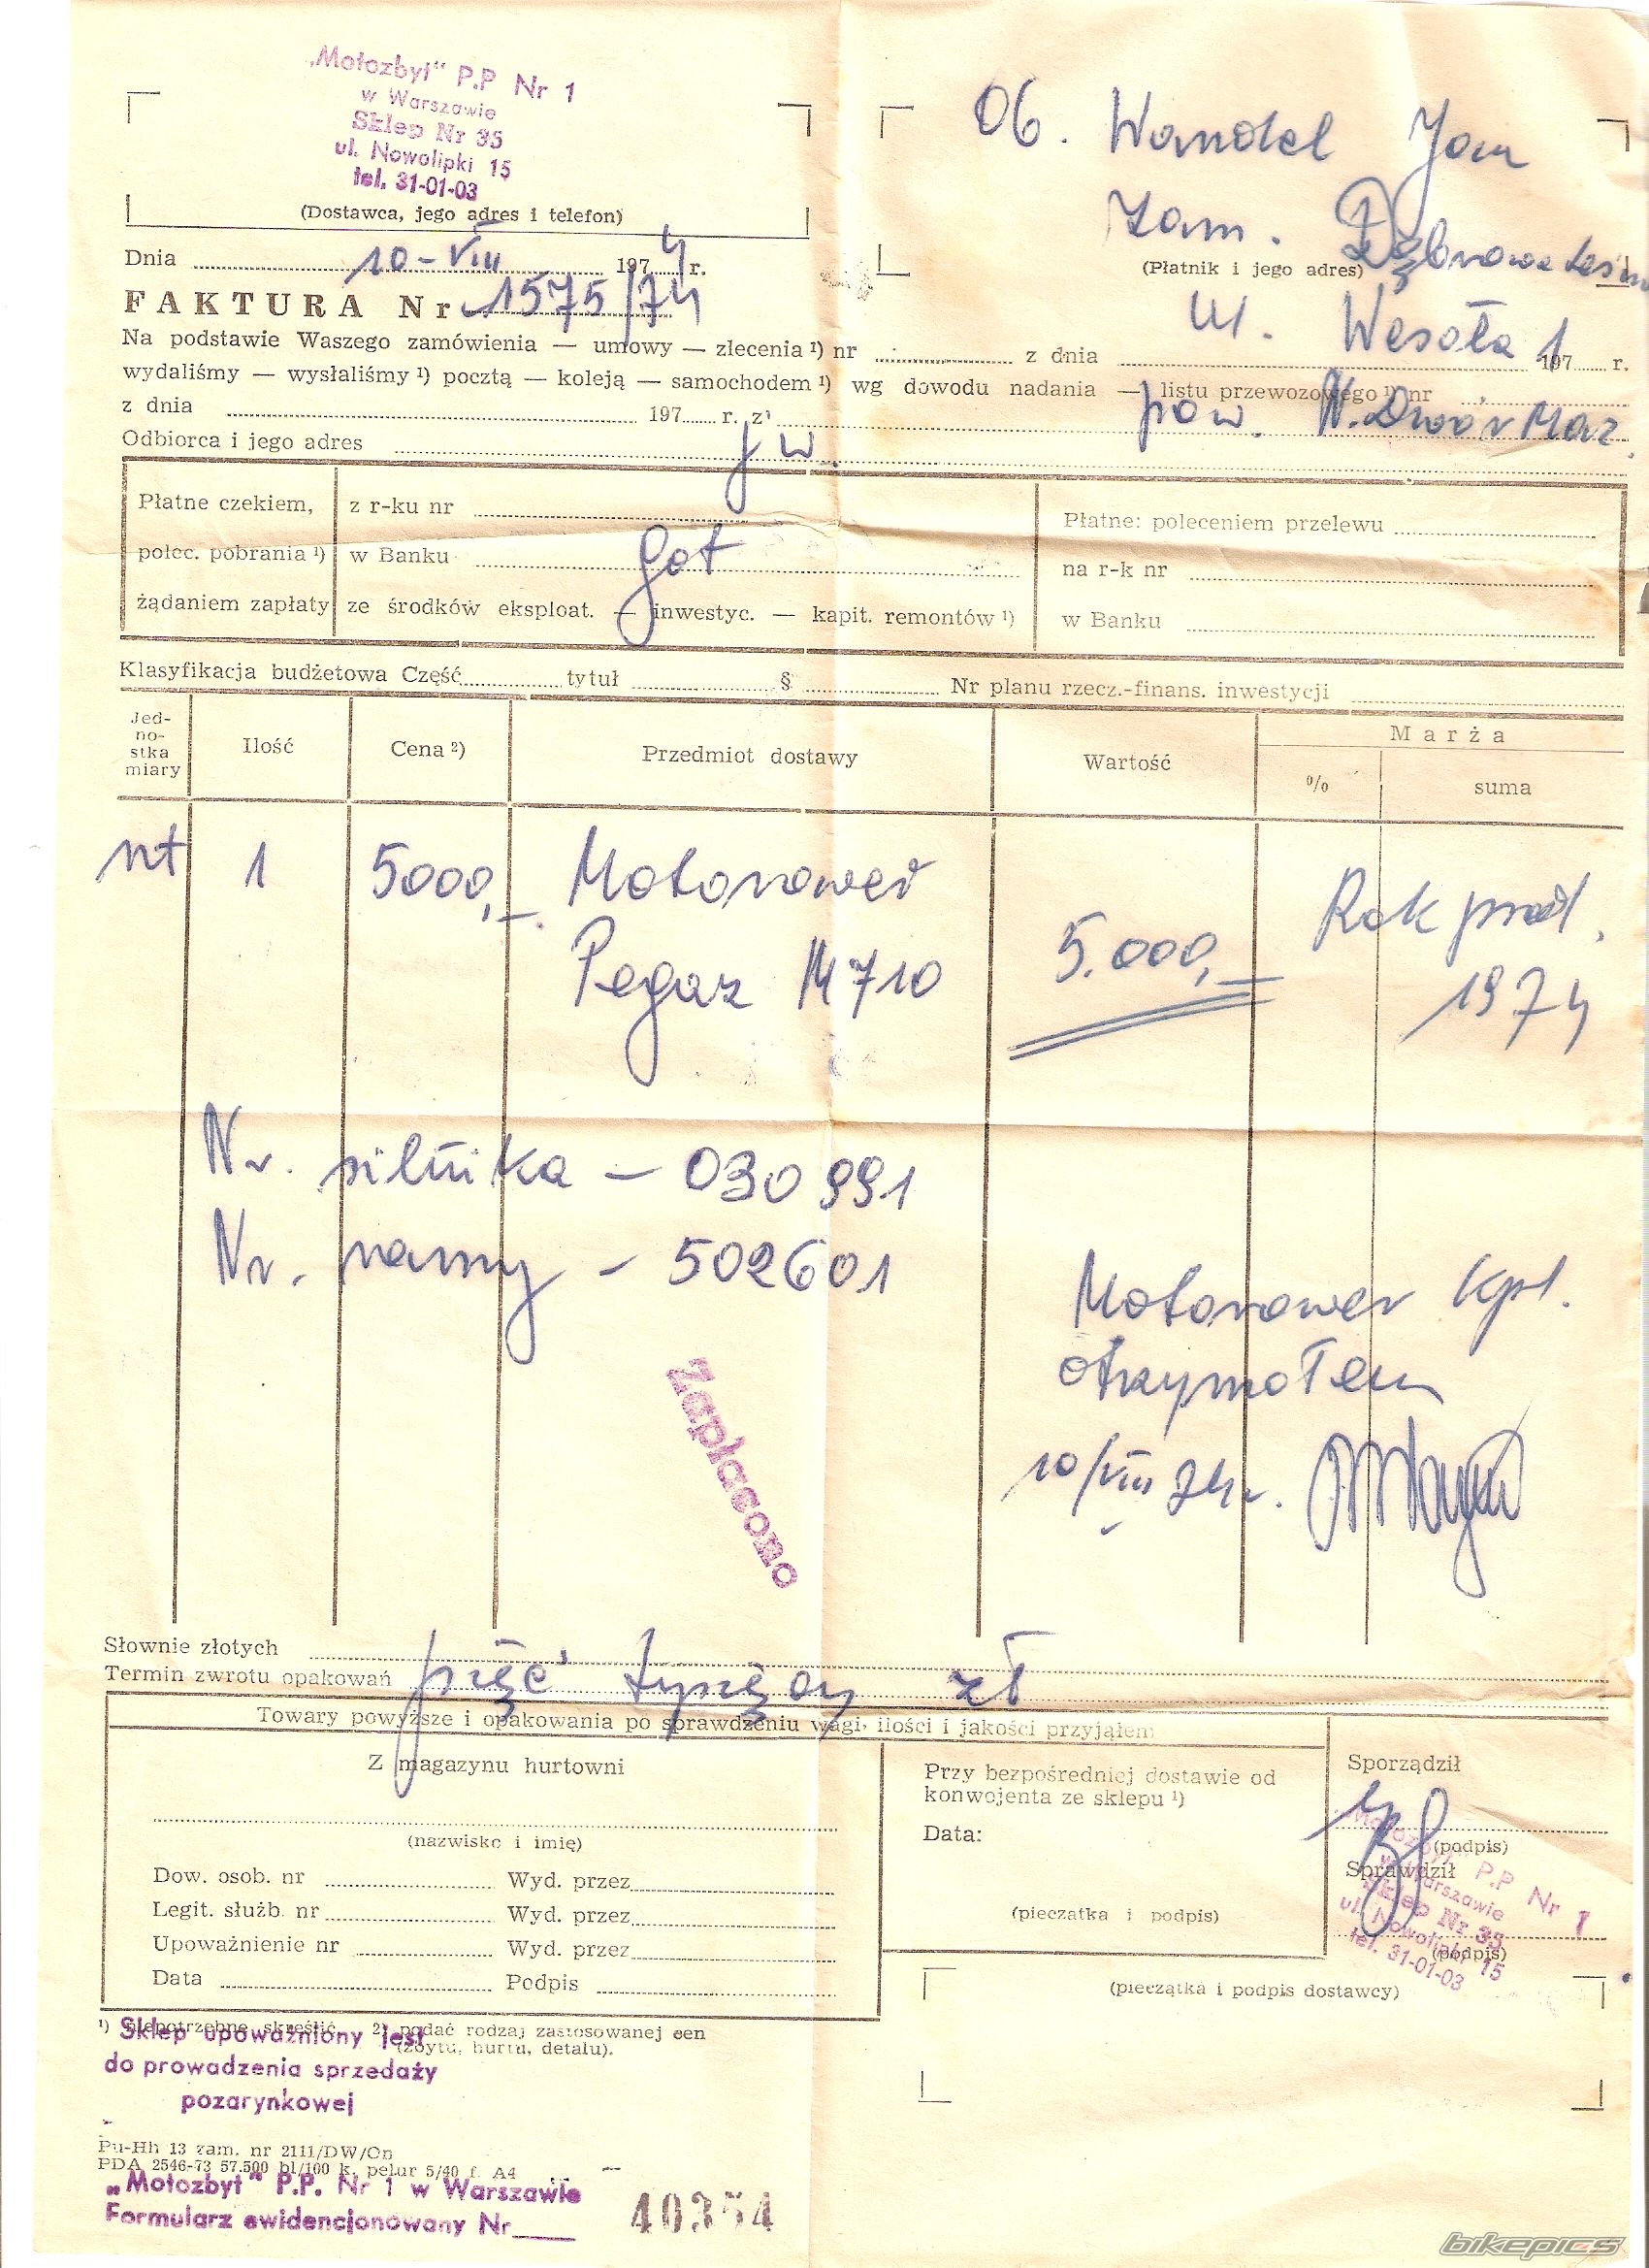 „Motozbyt" P.P Nr 1
w Warszawie
Sklep Nr 35
ul. Nowolipki 15
tel. 31-01-03
(Dostawca, jego adres i telefon)
Ob. Wandel Jan
zam. Dębnowe Leśn
(Płatnik i jego adres)
ul. Wesoła 1
pow. N. Dwór Maz.
Dnia 10-VIII 1974 r.
FAKTURA Nr 1575/74
Na podstawie Waszego zamówienia — umowy — zlecenia ¹) nr z dnia 197 r.
wydaliśmy — wysłaliśmy ¹) pocztą — koleją — samochodem ¹) wg dowodu nadania — listu przewozowego ¹) nr
z dnia 197 r. z
Odbiorca i jego adres jw
Płatne czekiem, z r-ku nr Płatne: poleceniem przelewu
polec. pobrania ¹) w Banku got na r-k nr
żądaniem zapłaty ze środków eksploat. — inwestyc. — kapit. remontów ¹) w Banku
Klasyfikacja budżetowa Część tytuł § Nr planu rzecz.-finans. inwestycji
Jed-
no-
stka
miary
Ilość
Cena ²)
Przedmiot dostawy
Wartość
Marża
% suma
szt 1 5000,- Motorower 5.000,- Rok prod.
Pegaz M 710 1974
Nr. silnika - 030991
Nr. ramy - 502601
Motorower kpl.
otrzymałem
10/VIII 74r.
Zapłacono
Słownie złotych
Termin zwrotu opakowań pięć tysięcy zł
Towary powyższe i opakowania po sprawdzeniu wagi, ilości i jakości przyjąłem
Z magazynu hurtowni
(nazwisko i imię)
Dow. osob. nr Wyd. przez
Legit. służb. nr Wyd. przez
Upoważnienie nr Wyd. przez
Data Podpis
Przy bezpośredniej dostawie od
konwojenta ze sklepu ¹)
Data:
(pieczątka i podpis)
Sporządził
(podpis)
Sprawdził
(podpis)
Motozbyt" P.P Nr 1
w Warszawie
Sklep Nr 35
ul. Nowolipki 15
tel. 31-01-03
(pieczątka i podpis dostawcy)
¹) niepotrzebne skreślić ²) podać rodzaj zastosowanej cen
(zbytu, hurtu, detalu).
Sklep upoważniony jest
do prowadzenia sprzedaży
pozarynkowej
Pu-Hh 13 zam. nr 2111/DW/On
PDA 2546-73 57.500 bl/100 k. pelur 5/40 f. A4
„Motozbyt" P.P. Nr 1 w Warszawie
Formularz ewidencjonowany Nr 40354
bikepics